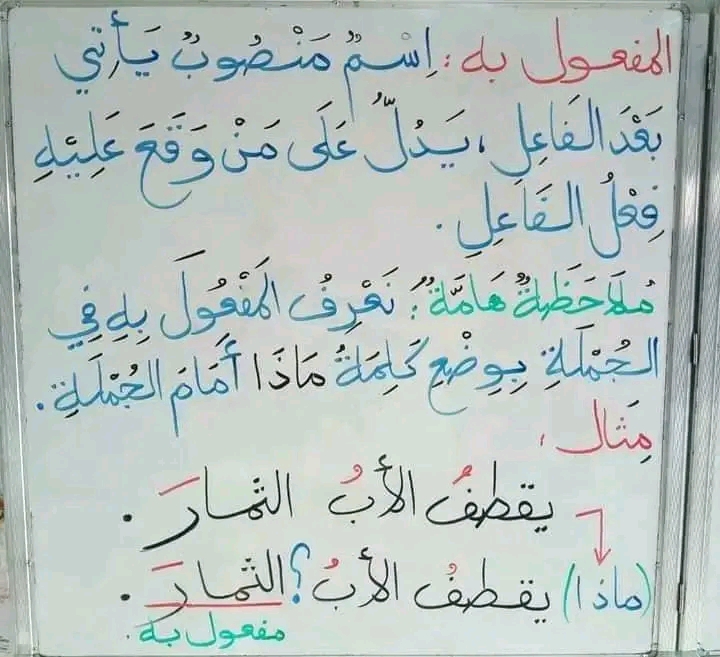 المفعول به : اِسْمٌ مَنْصُوبٌ يَأْتِي
بَعْدَ الفَاعِلِ ، يَدُلُّ عَلَى مَنْ وَقَعَ عَلَيْهِ
فِعْلُ الفَاعِلِ .
مُلَاحَظَةٌ هَامَّةٌ : نَعْرِفُ المَفْعُولَ بِهِ فِي
الجُمْلَةِ بِوَضْعِ كَلِمَةُ مَاذَا أَمَامَ الجُمْلَةِ .
مِثال :
يقطفُ الأبُ الثمارَ .
(ماذا) يقطفُ الأبُ؟ الثمارَ .
مفعول به .